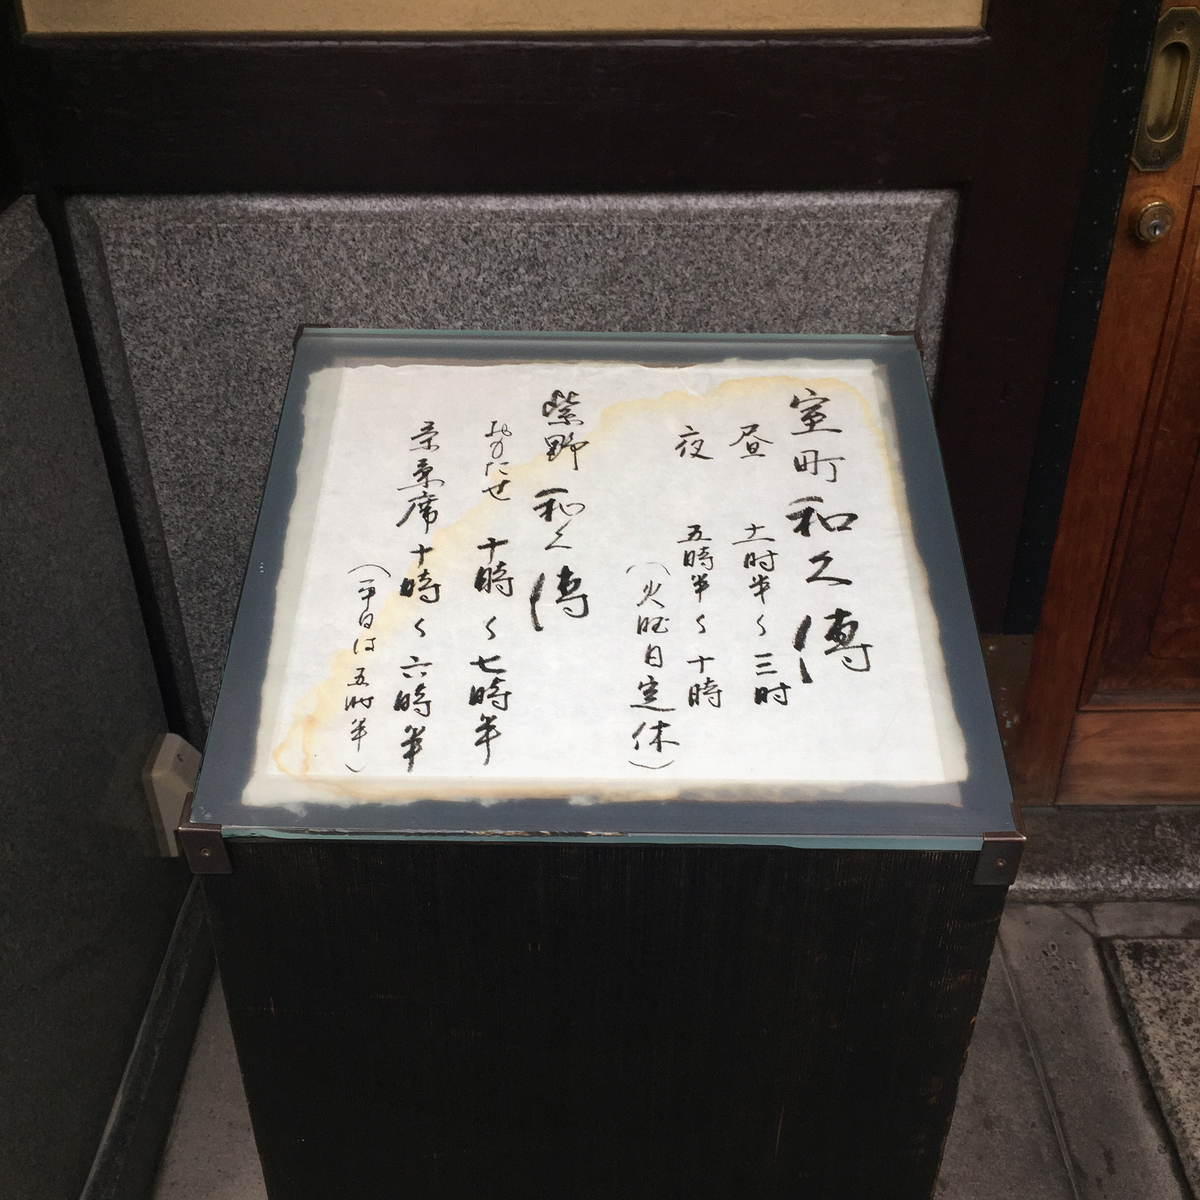 室町 和久傳
昼 十一時半〜三時
夜 五時半〜十時
（火曜日定休）
紫野 和久傳
おもたせ 十時〜七時半
茶菓席 十時〜六時半
（平日は五時半）